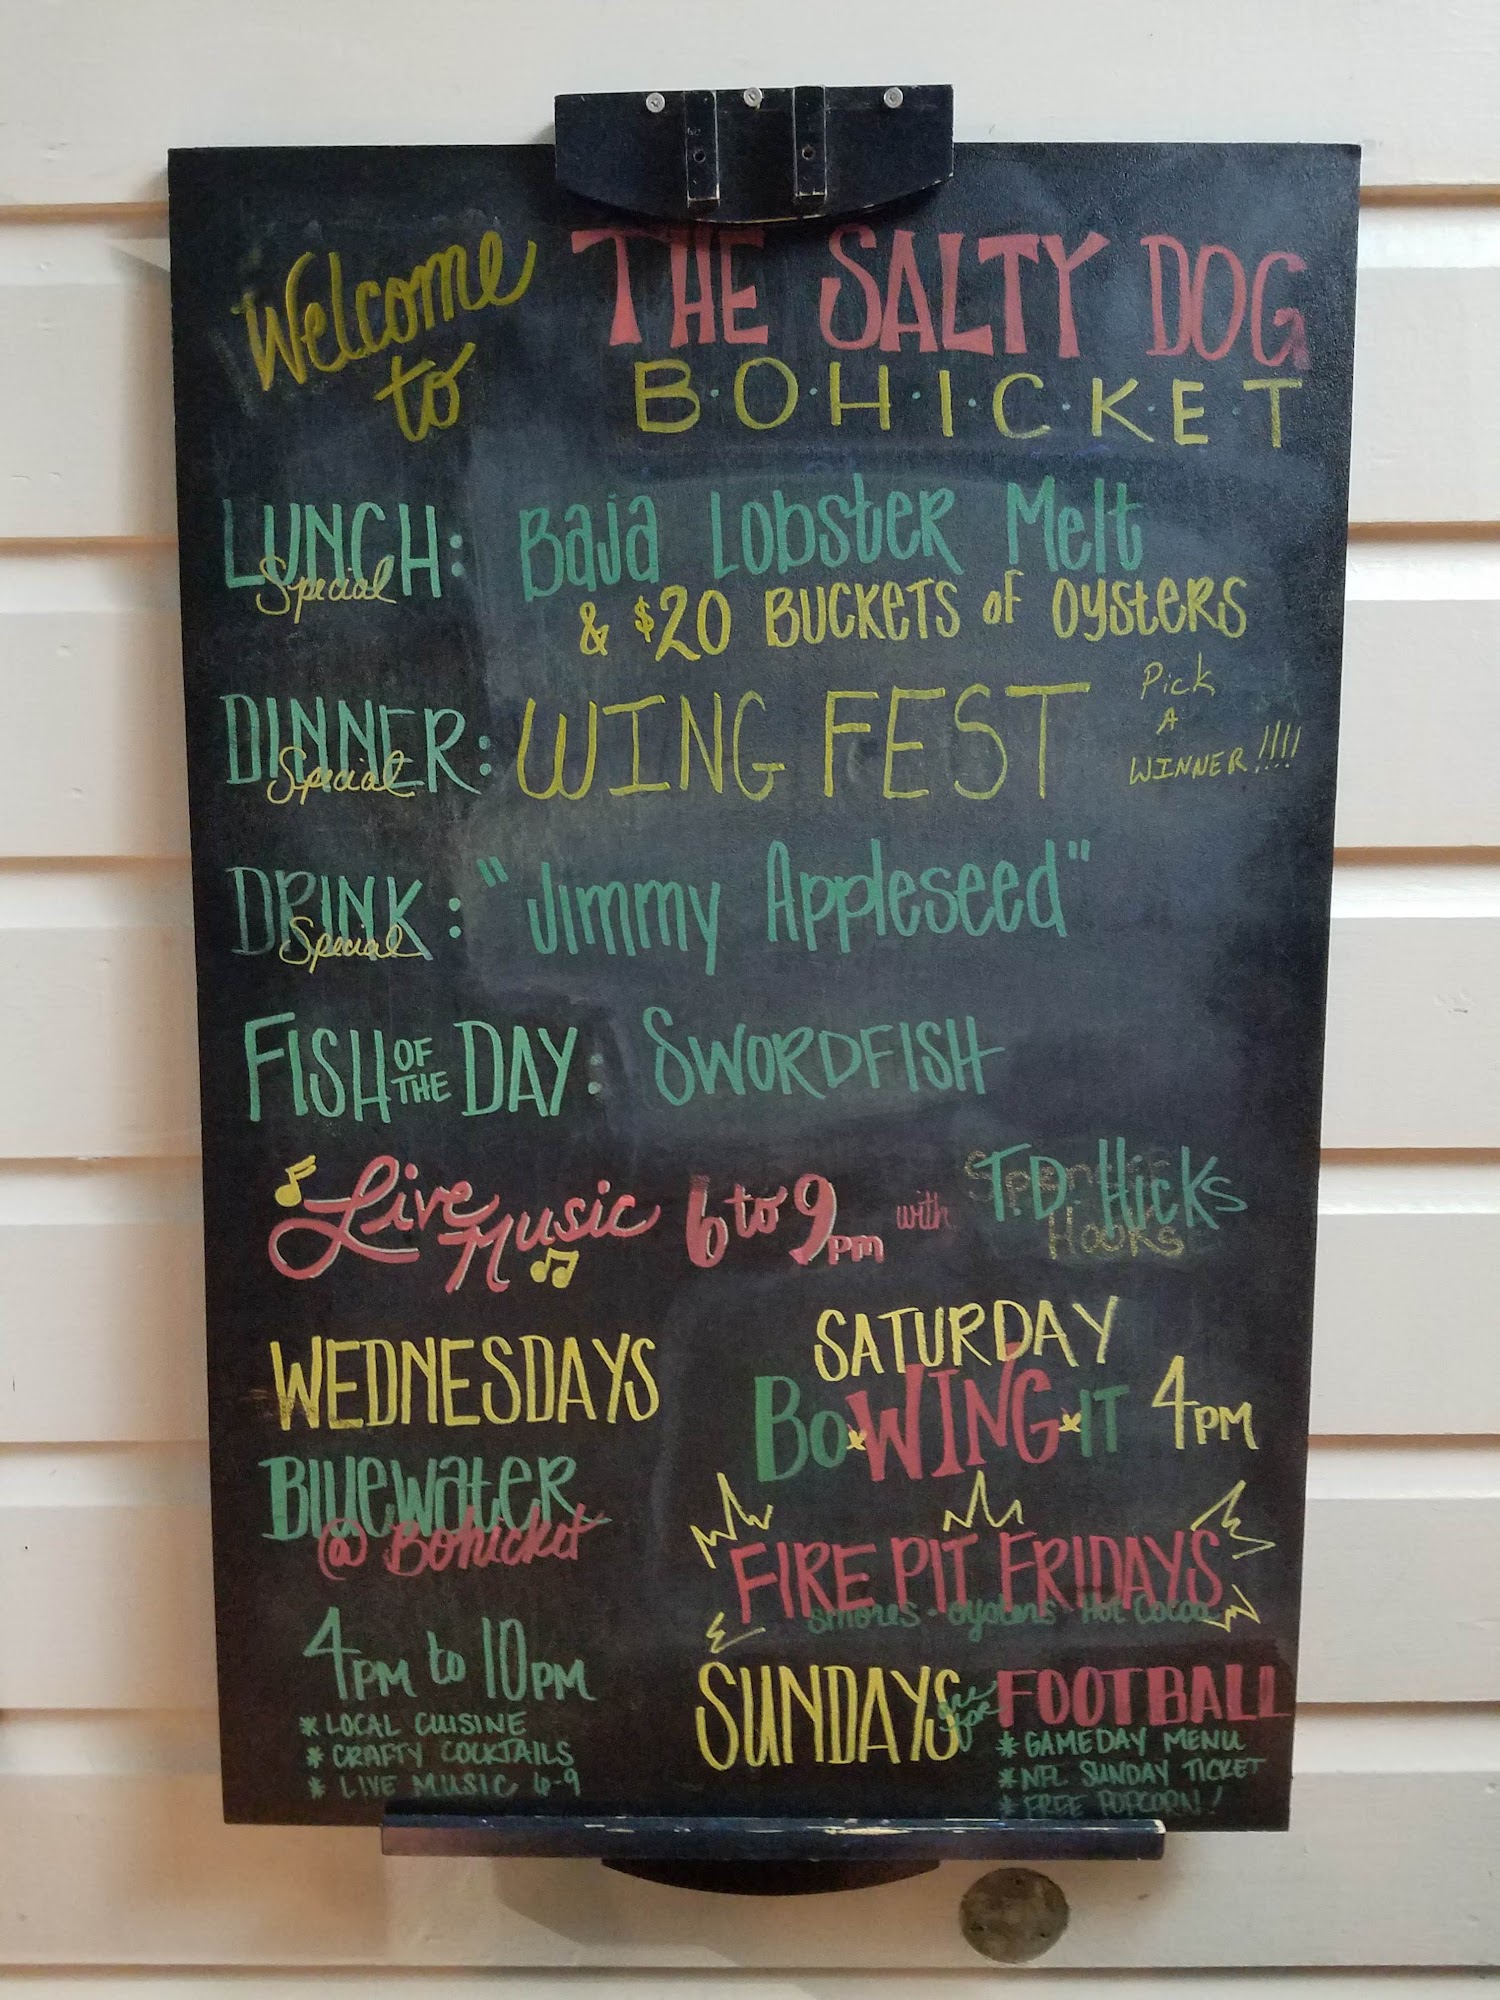 Welcome to THE SALTY DOG
B·O·H·I·C·K·E·T
LUNCH: Baja Lobster Melt
Special
& $20 BUCKETS of OYSTERS
DINNER: WING FEST
Special
Pick
A
WINNER!!!!
DRINK: "Jimmy Appleseed"
Special
FISH OF THE DAY: SWORDFISH
Live Music 6 to 9pm with T.D. Hicks
WEDNESDAYS
Bluewater
@ Bohicket
4pm to 10pm
* LOCAL CUISINE
* CRAFTY COCKTAILS
* LIVE MUSIC 6-9
SATURDAY
Bo*WING*IT 4pm
FIRE PIT FRIDAYS
smores - oysters - Hot Cocoa
SUNDAYS are for FOOTBALL
* GAMEDAY MENU
* NFL SUNDAY TICKET
* FREE POPCORN!